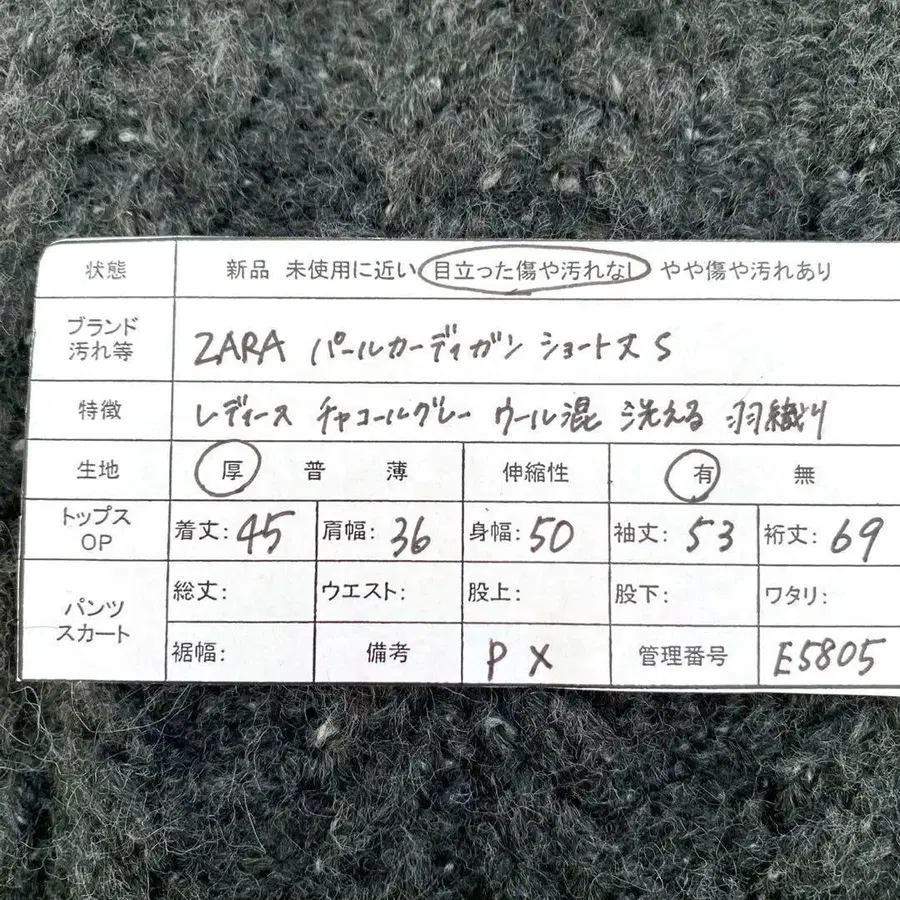 状態 新品 未使用に近い 目立った傷や汚れなし やや傷や汚れあり
ブランド
汚れ等
ZARA パールカーディガン ショート丈 S
特徴 レディース チャコールグレー ウール混 洗える 羽織り
生地 厚 普 薄 伸縮性 有 無
トップス
OP
着丈: 45 肩幅: 36 身幅: 50 袖丈: 53 裄丈: 69
パンツ
スカート
総丈: ウエスト: 股上: 股下: ワタリ:
裾幅: 備考 P X 管理番号 E5805